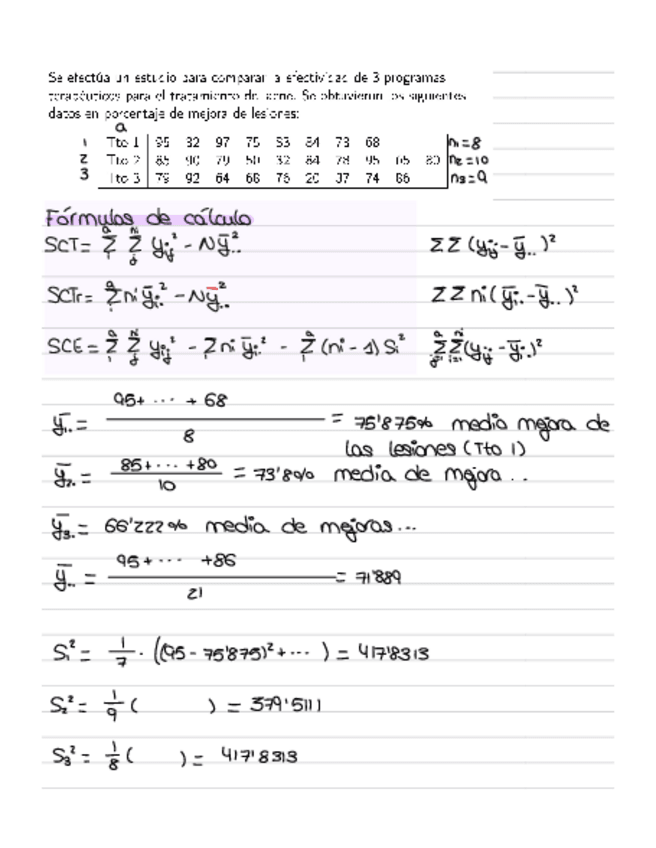 Se efectúa un estudio para comparar la efectividad de 3 programas
terapéuticos para el tratamiento de acne. Se obtuvieron los siguientes
datos en porcentaje de mejora de lesiones:
a
1 Tto 1 95 32 97 75 84 73 68 n₁=8
2 Tto 2 85 90 79 50 32 84 78 95 65 80 n₂=10
3 Tto 3 79 92 64 20 37 74 86 n₃=9
Fórmulas de cálculo
SCT= Σ Σ yij² - Nȳ..² ΣΣ (yij - ȳ..)²
SCTr= Σ ni ȳi.² - Nȳ..² ΣΣ ni(ȳi. - ȳ..)²
SCE = Σ Σ yij² - Σ ni ȳi.² - Σ (ni - 1) Si² ΣΣ(yij - ȳi.)²
ȳ₁. = 95+ ... + 68 / 8 = 75'875% media mejora de
las lesiones (Tto 1)
ȳ₂. = 85+ ... +80 / 10 = 73'80% media de mejora ..
ȳ₃. = 66'222% media de mejoras...
ȳ.. = 95+ ... +86 / 21 = 71'889
S₁² = 1/7 · ((95 - 75'875)² + ... ) = 417'8313
S₂² = 1/9 ( ) = 379'5111
S₃² = 1/8 ( ) = 417'8313